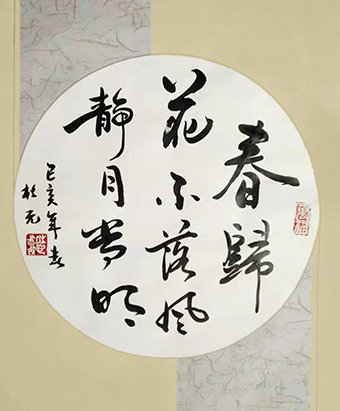 春歸
花不落風
靜月常明
己亥年春